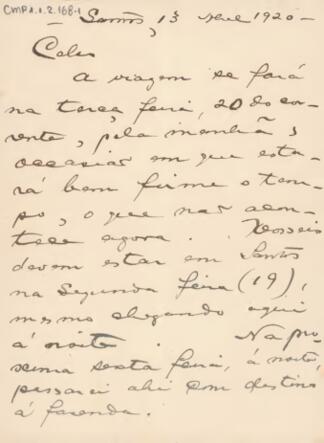 CMP.1.1.2.168-1
Santos, 13 Abril 1920 -
A viagem se fará
na terça feira, 20 do cor-
rente, pela manhã,
occasião em que esta-
rá bem firme o tem-
po, o que não acon-
tece agora.
devem estar em Santos
na segunda feira (19),
mesmo chegando aqui
á noite. Na pro-
xima sexta feira, á noite,
passarei ahi com destino
á fazenda.